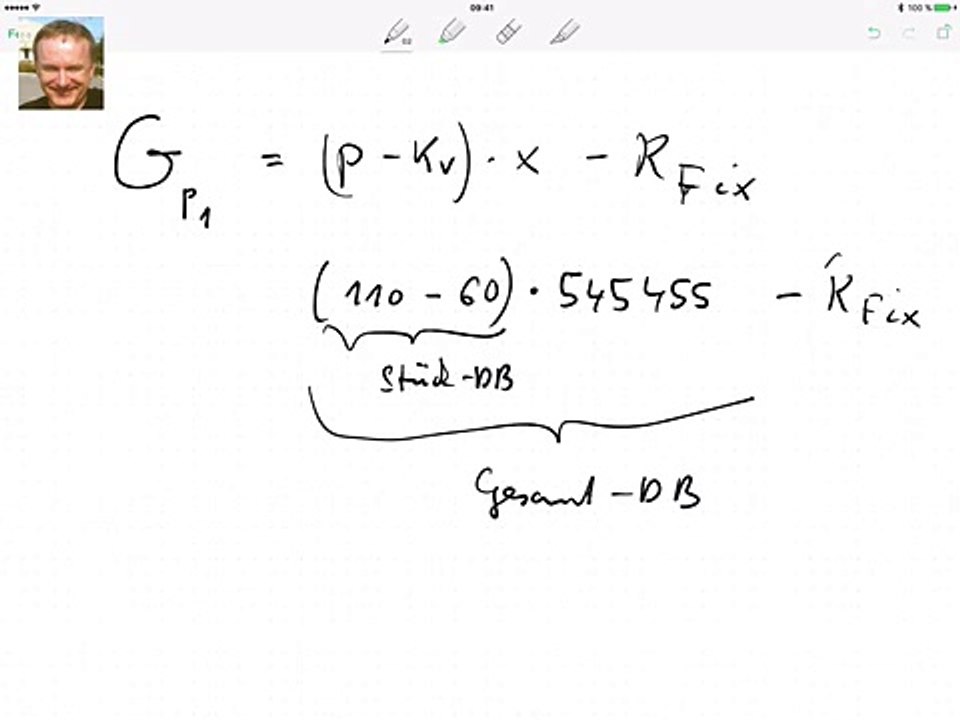 09:41
100 %
G_{P_1} = (p - K_v) · x - K_{Fix}
(110 - 60) · 545455 - K_{Fix}
Stück-DB
Gesamt-DB